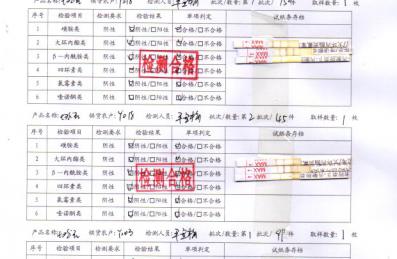 序号 检验项目 检测要求 检验结果 单项判定 试纸条存档
1 磺胺类 阴性 ☑阴性/□阳性 ☑合格/□不合格
2 大环内酯类 阴性 ☑阴性/□阳性 ☑合格/□不合格
3 β－内酰胺类 阴性 ☑阴性/□阳性 ☑合格/□不合格
4 四环素类 阴性 ☑阴性/□阳性 ☑合格/□不合格
5 氯霉素类 阴性 ☑阴性/□阳性 ☑合格/□不合格
6 喹诺酮类 阴性 ☑阴性/□阳性 ☑合格/□不合格
检测合格
产品名称: 供货农户: 检测人员: 批次/数量:第2批次/165件 取样数量:1枚
序号 检验项目 检测要求 检验结果 单项判定 试纸条存档
1 磺胺类 阴性 ☑阴性/□阳性 ☑合格/□不合格
2 大环内酯类 阴性 ☑阴性/□阳性 ☑合格/□不合格
3 β－内酰胺类 阴性 ☑阴性/□阳性 ☑合格/□不合格
4 四环素类 阴性 ☑阴性/□阳性 ☑合格/□不合格
5 氯霉素类 阴性 ☑阴性/□阳性 ☑合格/□不合格
6 喹诺酮类 阴性 ☑阴性/□阳性 ☑合格/□不合格
检测合格
产品名称: 供货农户: 检测人员: 批次/数量:第1批次/ 取样数量:1枚
序号 检验项目 检测要求 检验结果 单项判定 试纸条存档